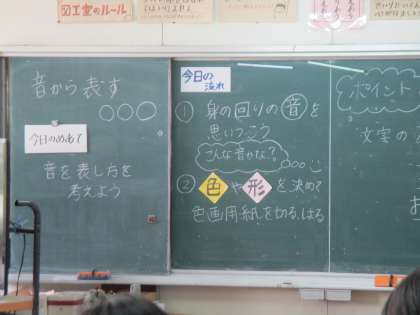 図工室のルール
音から表す
○○○
今日のめあて
音を表し方を
考えよう
今日の流れ
① 身の回りの音を
思いつこう
こんな音かな?
② 色や形を決めて
色画用紙を切る、はる
ポイント
文字の